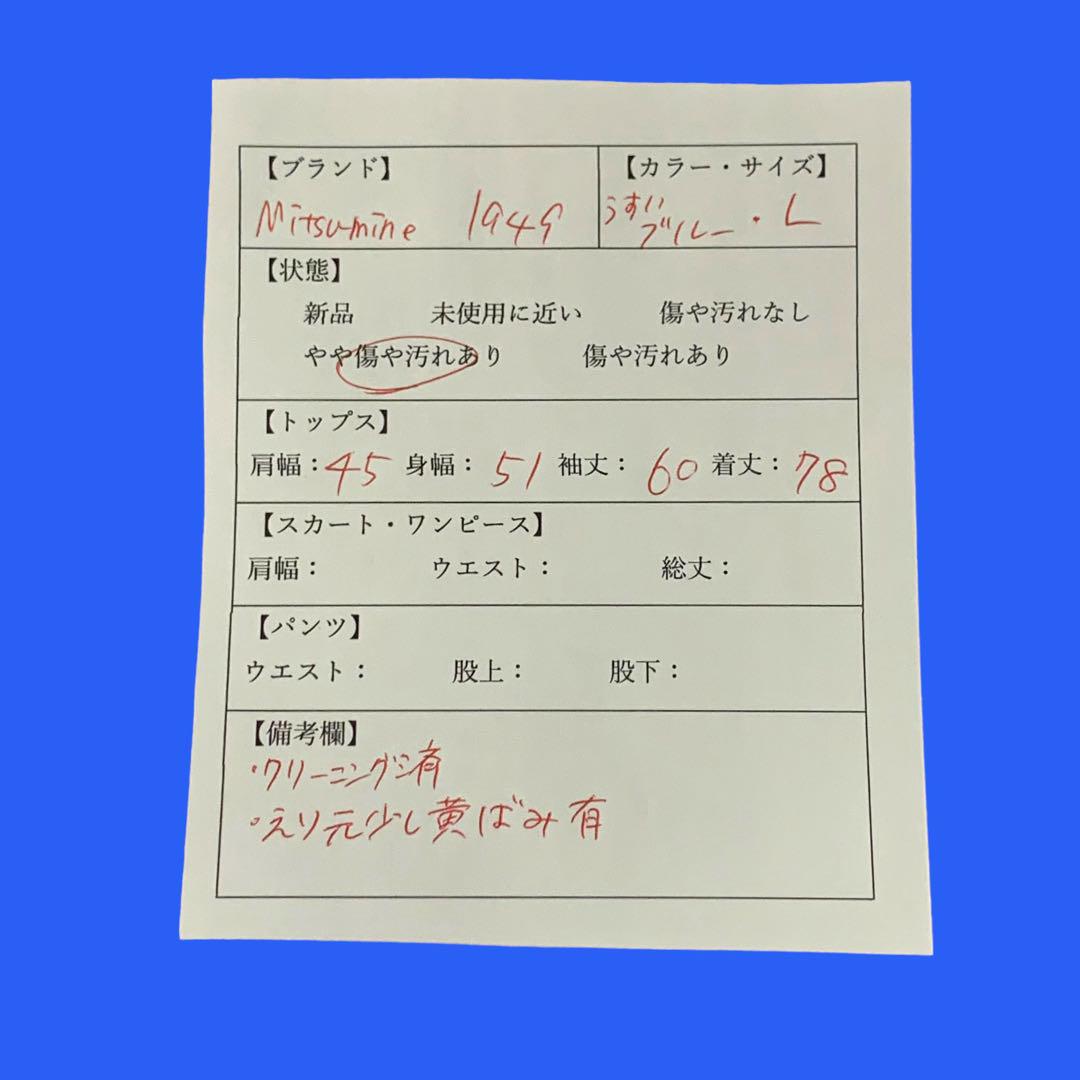 【ブランド】
Mitsumine 1949
【カラー・サイズ】
うすい
ブルー・L
【状態】
新品 未使用に近い 傷や汚れなし
やや傷や汚れあり 傷や汚れあり
【トップス】
肩幅：45 身幅：51 袖丈：60 着丈：78
【スカート・ワンピース】
肩幅： ウエスト： 総丈：
【パンツ】
ウエスト： 股上： 股下：
【備考欄】
・クリーニング済
・えり元少し黄ばみ有